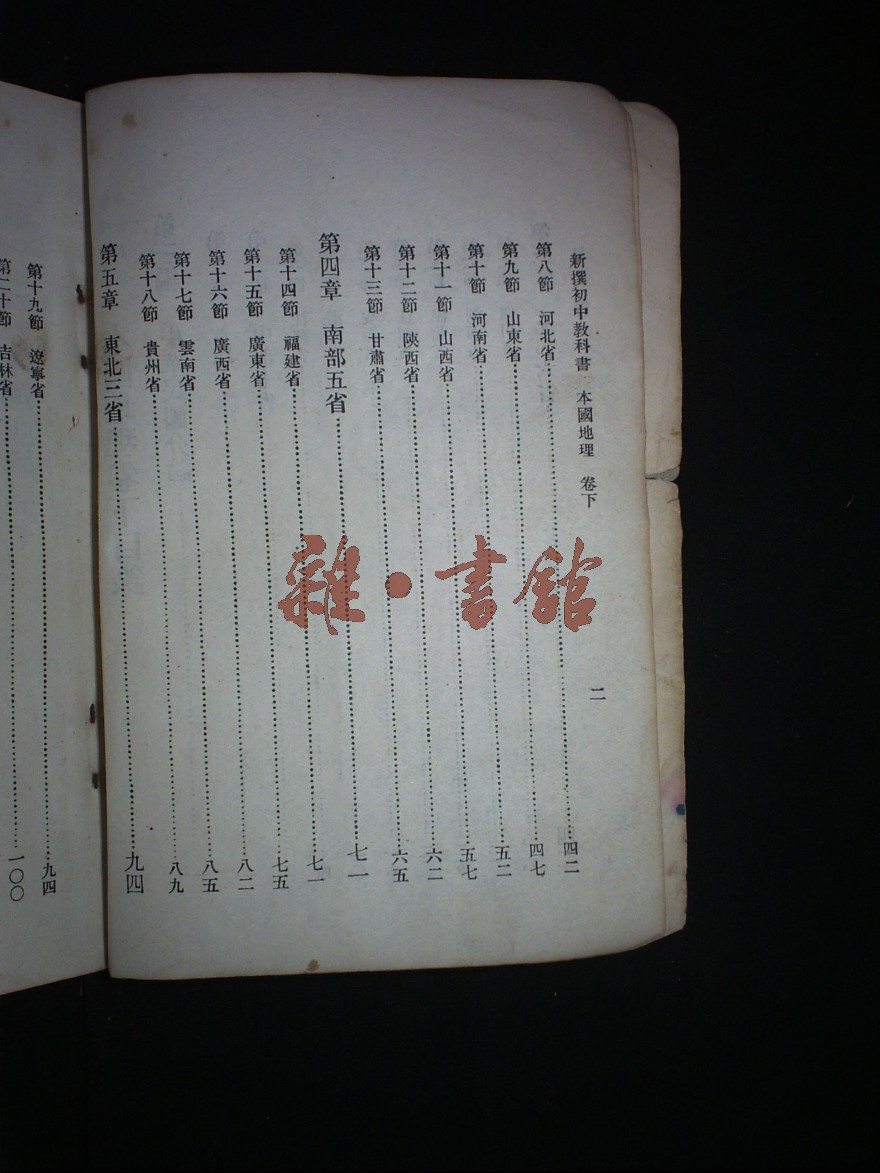 新撰初中教科書 本國地理 卷下 二
第八節 河北省 四二
第九節 山東省 四七
第十節 河南省 五二
第十一節 山西省 五七
第十二節 陝西省 六二
第十三節 甘肅省 六五
第四章 南部五省 七一
第十四節 福建省 七一
第十五節 廣東省 七五
第十六節 廣西省 八二
第十七節 雲南省 八五
第十八節 貴州省 八九
第五章 東北三省 九四
第十九節 遼寧省 九四
第二十節 吉林省 一〇〇
雜·書館